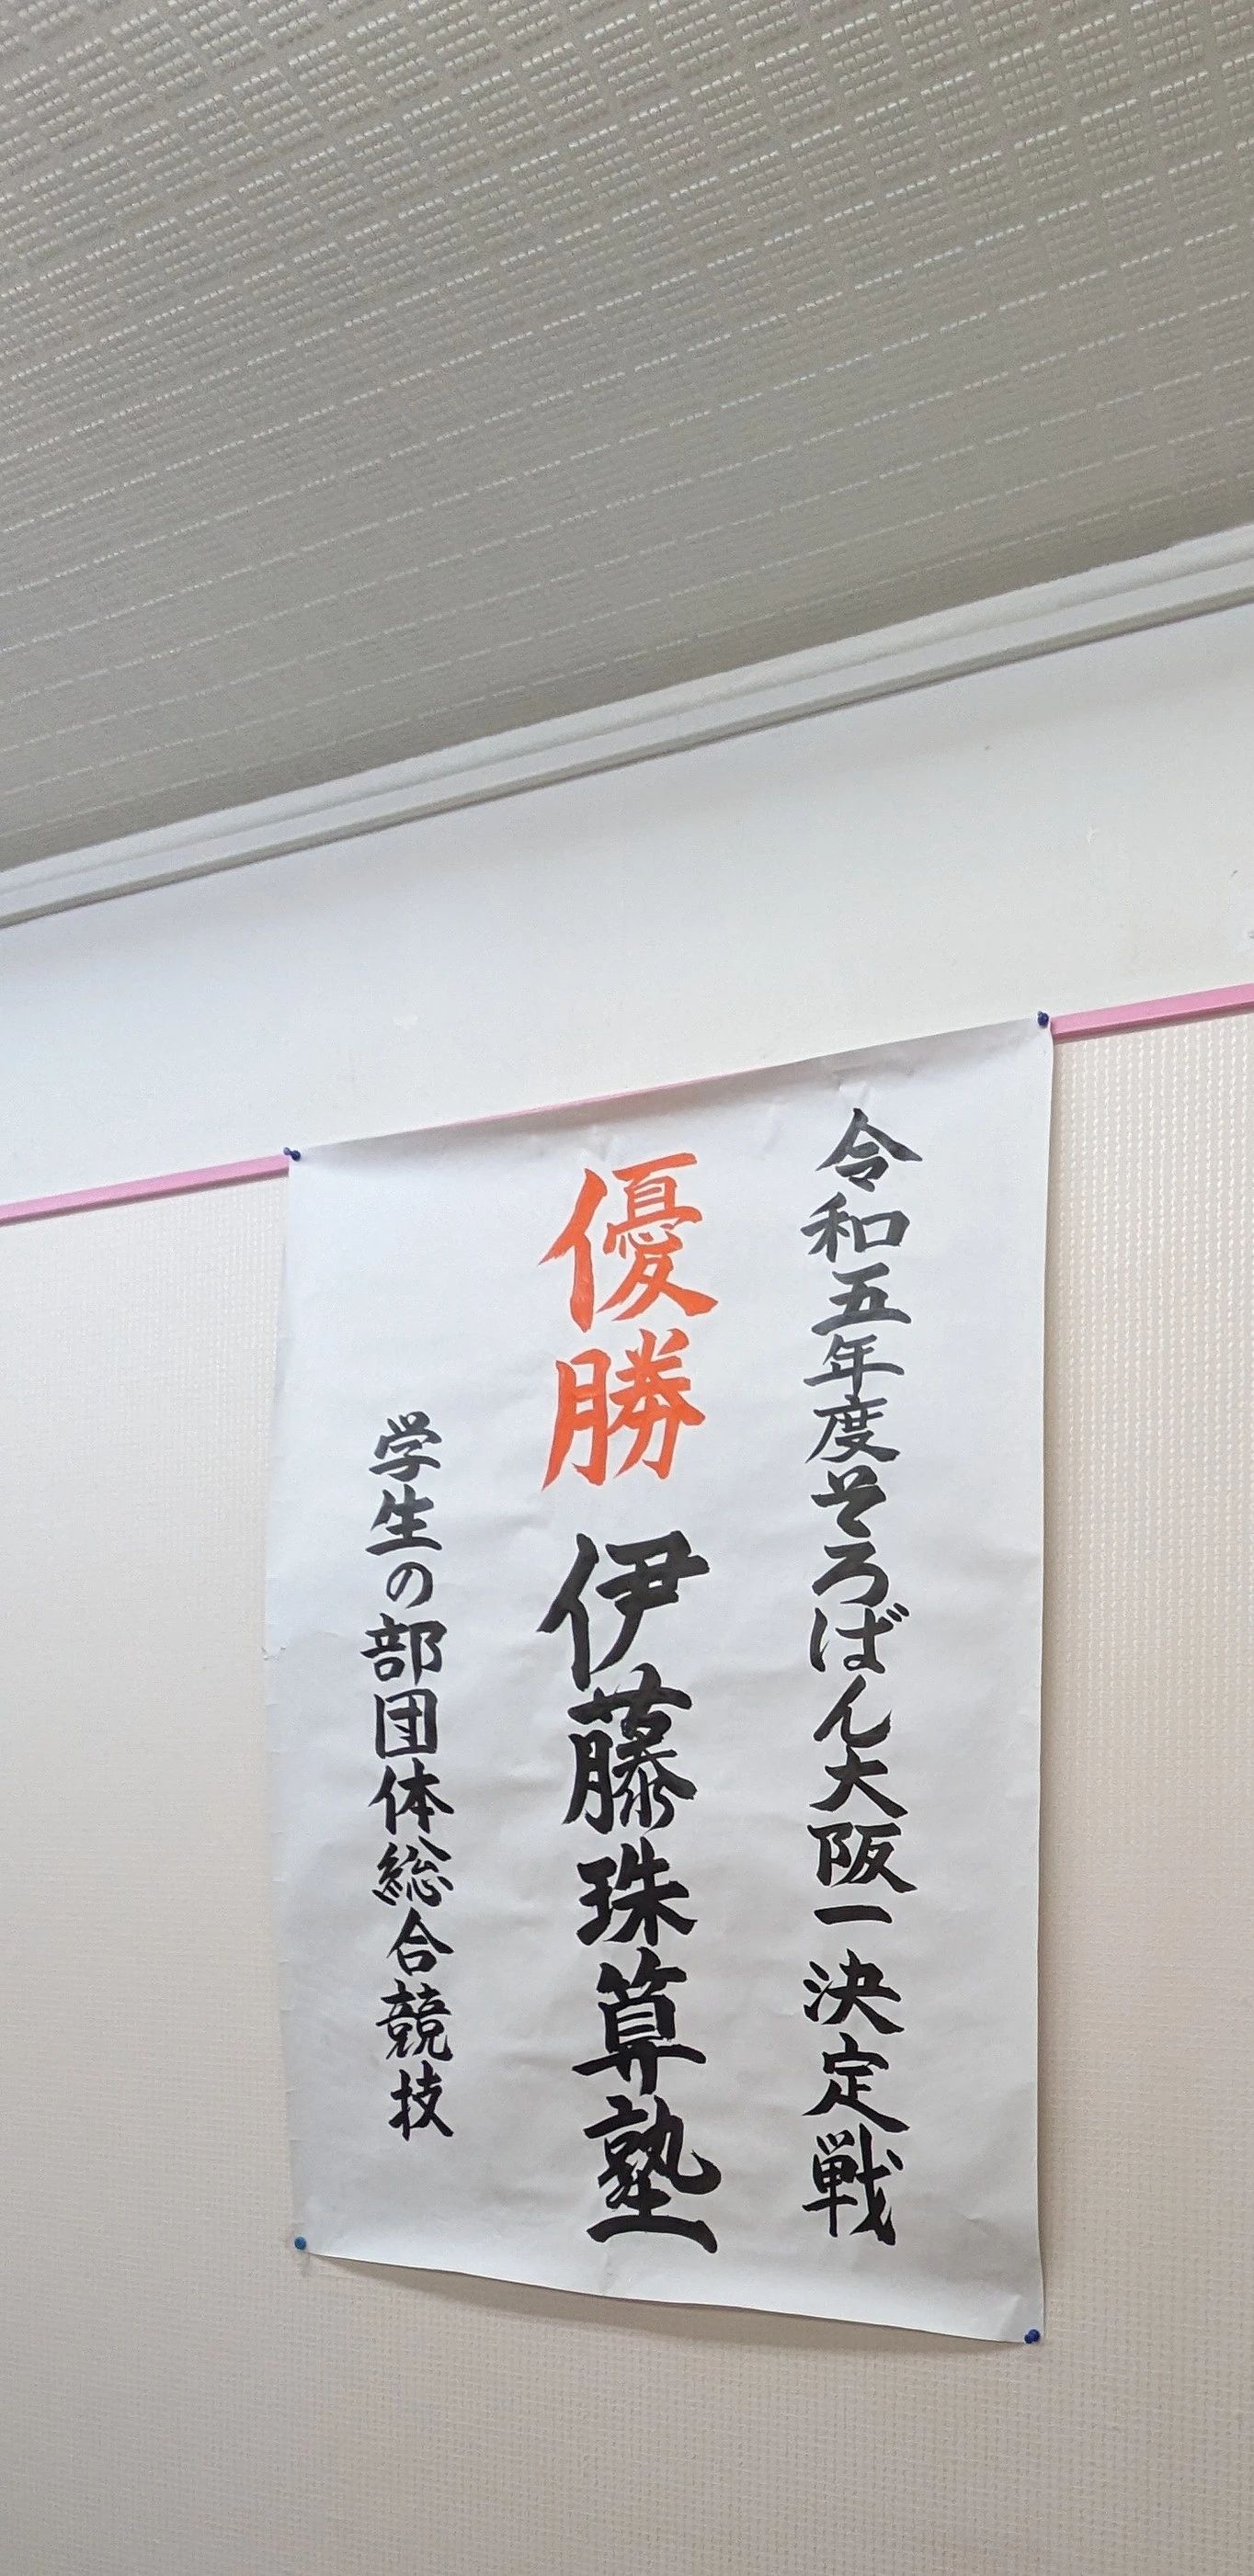 令和五年度そろばん大阪一決定戦
優勝 伊藤珠算塾
学生の部団体総合競技